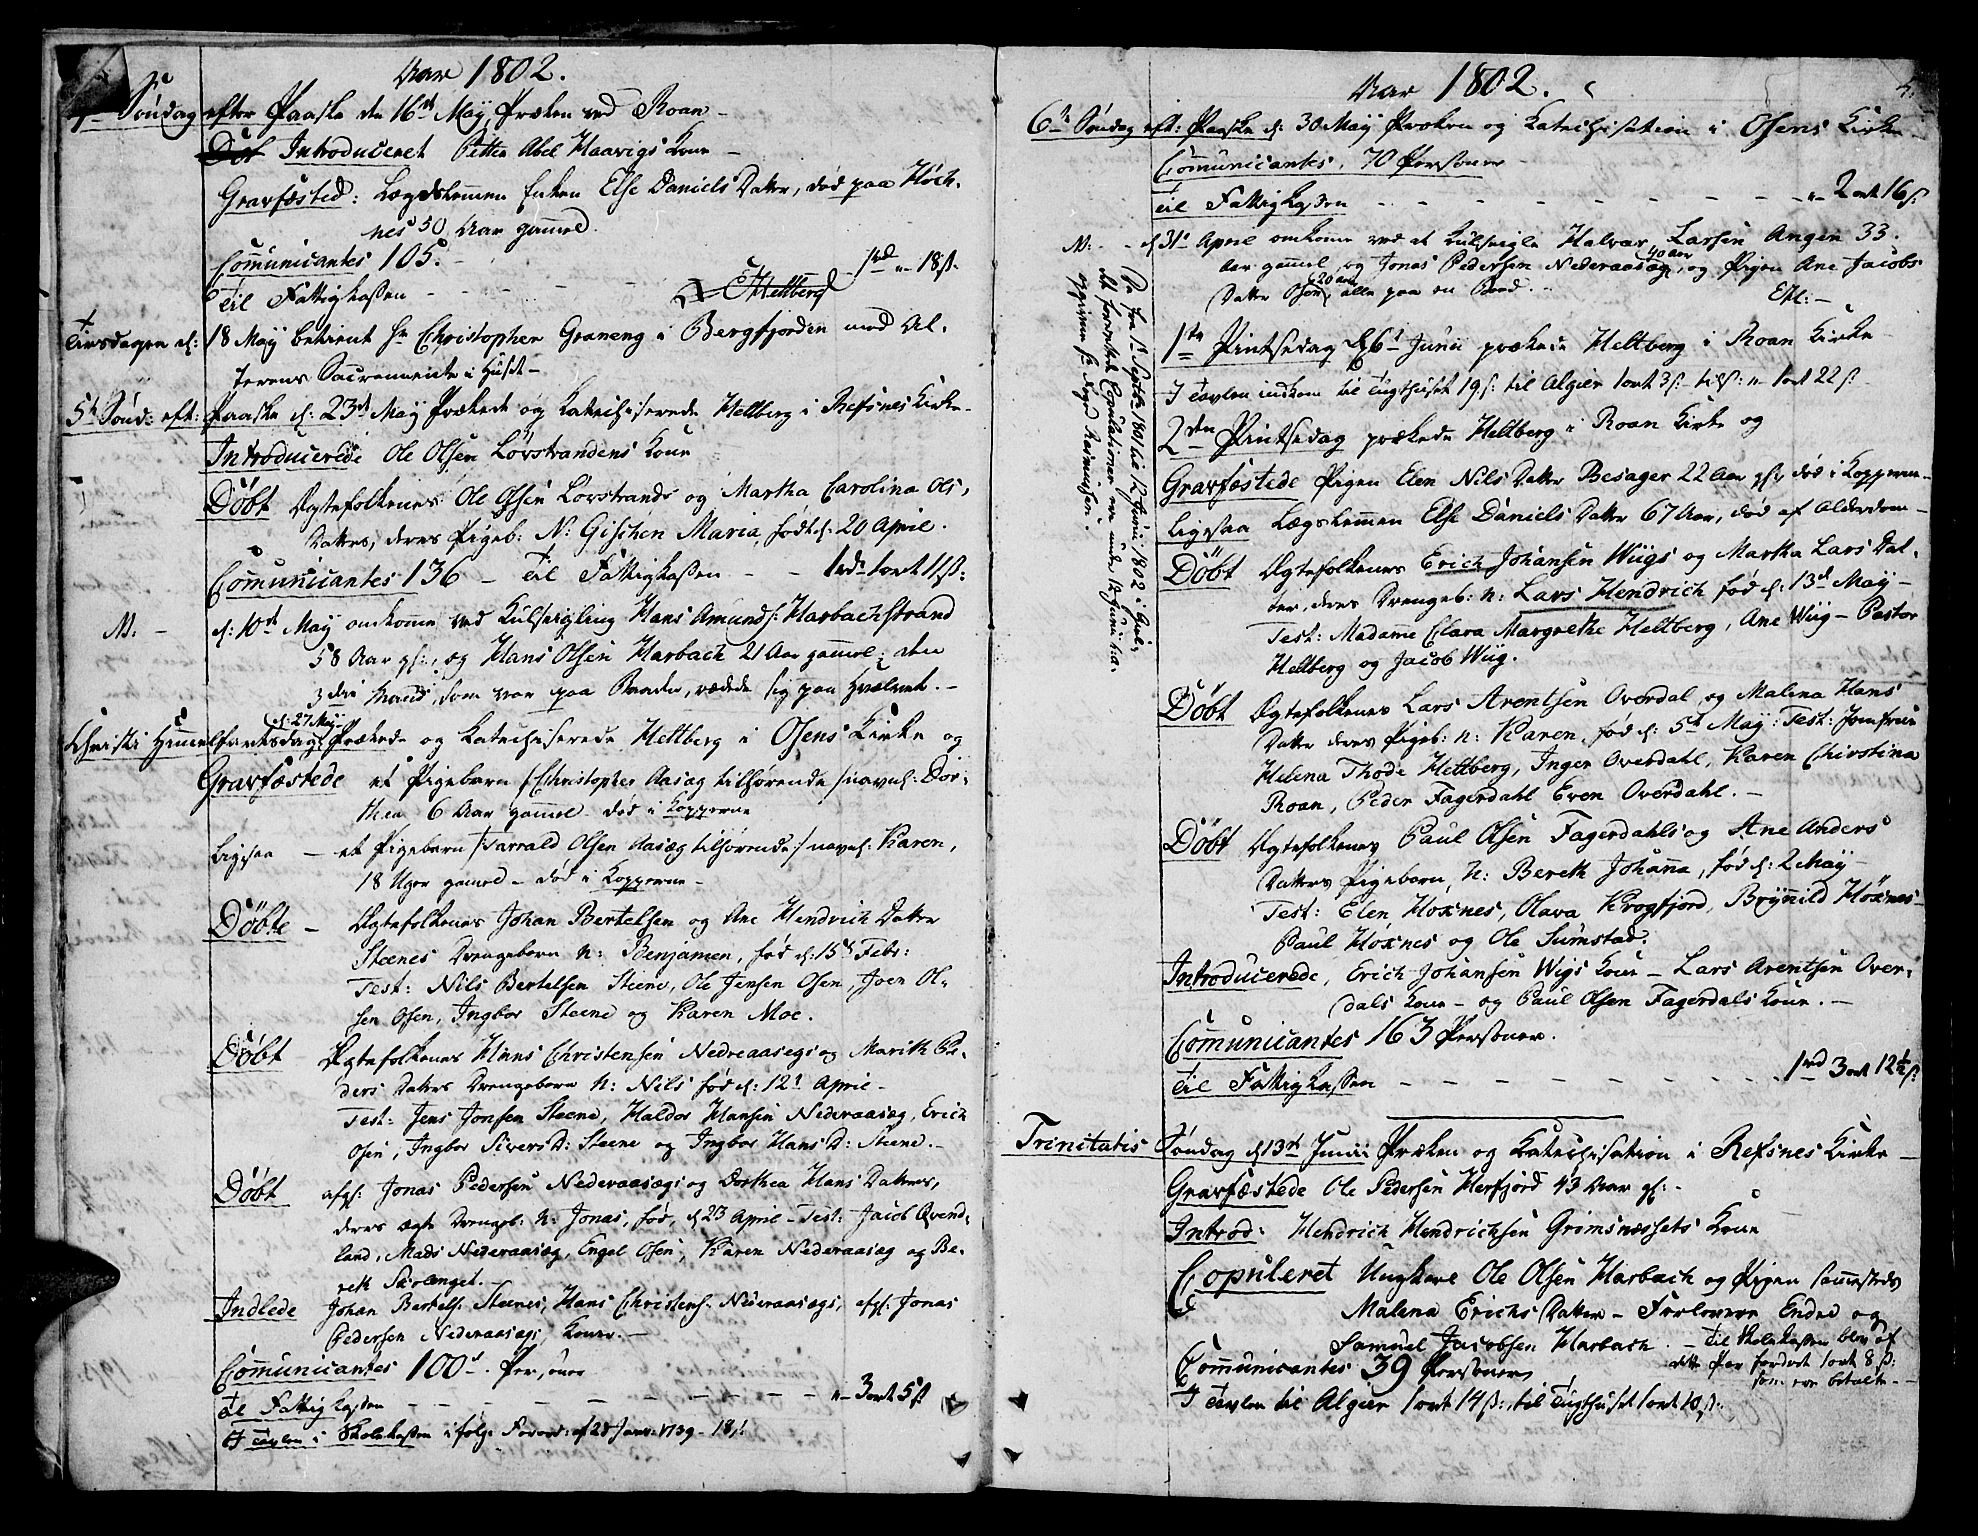 Aar 1802.
4de Søndag efter Paaske den 16de May Præken ved Roan -
Introduceret Petter Abel Haavigs Kone -
Gravfæsted: Lægdslemmen Enken Else Daniels Datter, død paa Høck-
nes 50 Aar gamel.
Comunicantes 105. -
Til Fattigkassen - - - - 1rd " 18 s.
Heltberg
Tirsdagen d: 18 May betient Sr Christopher Graneng i Bergfjorden med Al-
terens Sacramente i Huset -
5te Sønd: eft: Paaske d: 23de May Prækede og Katechiserede Heltberg i Refsnes Kirke -
Introducerede Ole Olsen Lövstrandens Kone
Døbt Ægtefolkenes Ole Olsen Lovstrands og Martha Carolina Ols-
Datters, deres Pigeb: N: Gischen Maria, født d: 20 April.
Comunicantes 136 - Til Fattigkassen - - 1rd 1ort 11s:
N. - d: 10de May omkomne ved Kulseigling Hans Amunds: Harbachstrand
58 Aar gl:, og Hans Olsen Harbach 21 Aar gammel; den
3die Mand, som var paa Baaden, reddede sig paa Hvælvet. -
d: 27 May
Christi Himmelfartsdag Prækede og Katechiserede Heltberg i Osens Kirke og
Gravfæstede et Pigebarn /Christopher Aasæg tilhørende/ navnl: Dor-
thea 6 Aar gammel død i Kopperne
Ligesaa - et Pigebarn /Tarrald Olsen Aasæg tilhørende:/ navnl: Karen,
18 Uger gamel - død i Kopperne -
Døbte - Ægtefolkenes Johan Bertelsen og Ane Hendrich Datter
Steenes Drengebarn N: Benjamen, fød d: 15de Febr:
Test: Nils Bertelsen Steene, Ole Jensen Osen, Joen Ol-
sen Osen, Ingbor Steene og Karen Moe.
Døbt - Ægtefolkenes Hans Christensen Nedreaasegs og Marith Pe-
ders Datters Drengebarn N: Nils fød d: 12t April -
Test: Jens Jonsen Steene, Haldor Hansen Nederaasæg, Erich
Osen, Ingbor Sivers D: Steene og Ingbor Hans D: Steene. -
Døbt afgl: Jonas Pedersen Nederaasægs og Dorthea Hans Datters,
deres ægte Drengeb: N: Jonas, fød, d 23 April - Test: Jacob Qvend-
land, Mads Nederaasæg, Engel Osen, Karen Nederaasæg og Be-
reth Sæænget. -
Indlede Johan Bertels: Steenes, Hans Christens: Nederaasægs, afgl: Jonas
Pedersen Nederaasægs, Koner. -
Comunicantes 100de Personer
Til Fattigkassen - - - - - - " 3 ort 5 s
I Tavlen i Skolekassen i følge Forord: af 28 Janr: 1739 - 18 s.
Aar 1802.
5.
6te Søndag eft: Paaske d: 30 May Præken og Katechisation i Osens Kirke -
Comunicantes, 70 Personer -
Til Fattigkassen - - - - - - - " 2 ort 16 s.
N: - - d 31t April omkomne ved at Kulseigle Halvar Larsen Angen 33.
Aar gammel og Jonas Pedersen Nederaasæg 40 aar, og Pigen Ane Jacobs
Datter Osen 20 aar, alle paa en Baad. -
1ste Pintsedag d 6t Junii prækede Heltberg i Roan Kirke -
I Tavlen indkom til Tugthuset 19 s: til Algier 1 ort 3 s. tils: " 1 ort 22 s
2den Pintsedag prækede Heltberg i Roan Kirke og
Gravfæstede Pigen Elen Nils Datter Besager 22 Aar gl: død i Kopperne -
Ligesaa Lægslemmen Else Daniels Datter 67 Aar, død af Alderdom -
Døbt Ægtefolkenes Erich Johansen Wiigs og Martha Lars Dat-
ter, deres Drengeb: N: Lars Hendrich fød d: 13de May -
Test: Madame Clara Margrethe Heltberg, Ane Wiig - Pastor
Heltberg og Jacob Wiig.
Døbt Ægtefolkenes Lars Arentsen Overdal og Malena Hans
Datter deres Pigeb: N: Karen, fød d: 5te May: Test: Jomfrue
Helena Thode Heltberg, Inger Overdahl, Karen Christina
Roan, Peder Fagerdahl Even Overdahl. -
Døbt Ægtefolkenes Paul Olsen Fagerdahls og Ane Anders
Datters Pigebarn, N: Bereth Johana, fød d: 2 May -
Test: Elen Hoxnes, Olava Krogfjord, Brÿnild Höxnes -
Paul Höxnes og Ole Sumstad.
Introducerede, Erich Johansen Wigs Kone - Lars Arentsen Over-
dals Kone - og Paul Olsen Fagerdals Kone. -
Comunicantes 163 Personer.
Til Fattigkassen - - - - - - - 1rd 3 ort 12½ s.
Trinitatis Søndag d 13de Junii Præken og Katechisation i Refsnes Kirke -
Gravfæstede Ole Pedersen Herfjord 43 Aar gl: -
Introd: Hendrich Hendrichsen Grimsnæssets Kone
Copuleret Ungkarl Ole Olsen Harbach og Pigen sammesteds
Malena Erichs Datter - Forlovere Endre og
Samuel Jacobsen Harbach. - Til Skolekassen blev af
dette Par fordret 1 ort 8 s:
som er betalt -
Comunicantes 39 Personer
I Tavlen til Algier 1 ort 14 s:, til Tugthuset 1 ort 10 s.
Da fra 1t Septbr 1801 til 12 Junii 1802
det forrettede Copulationer
opgiven